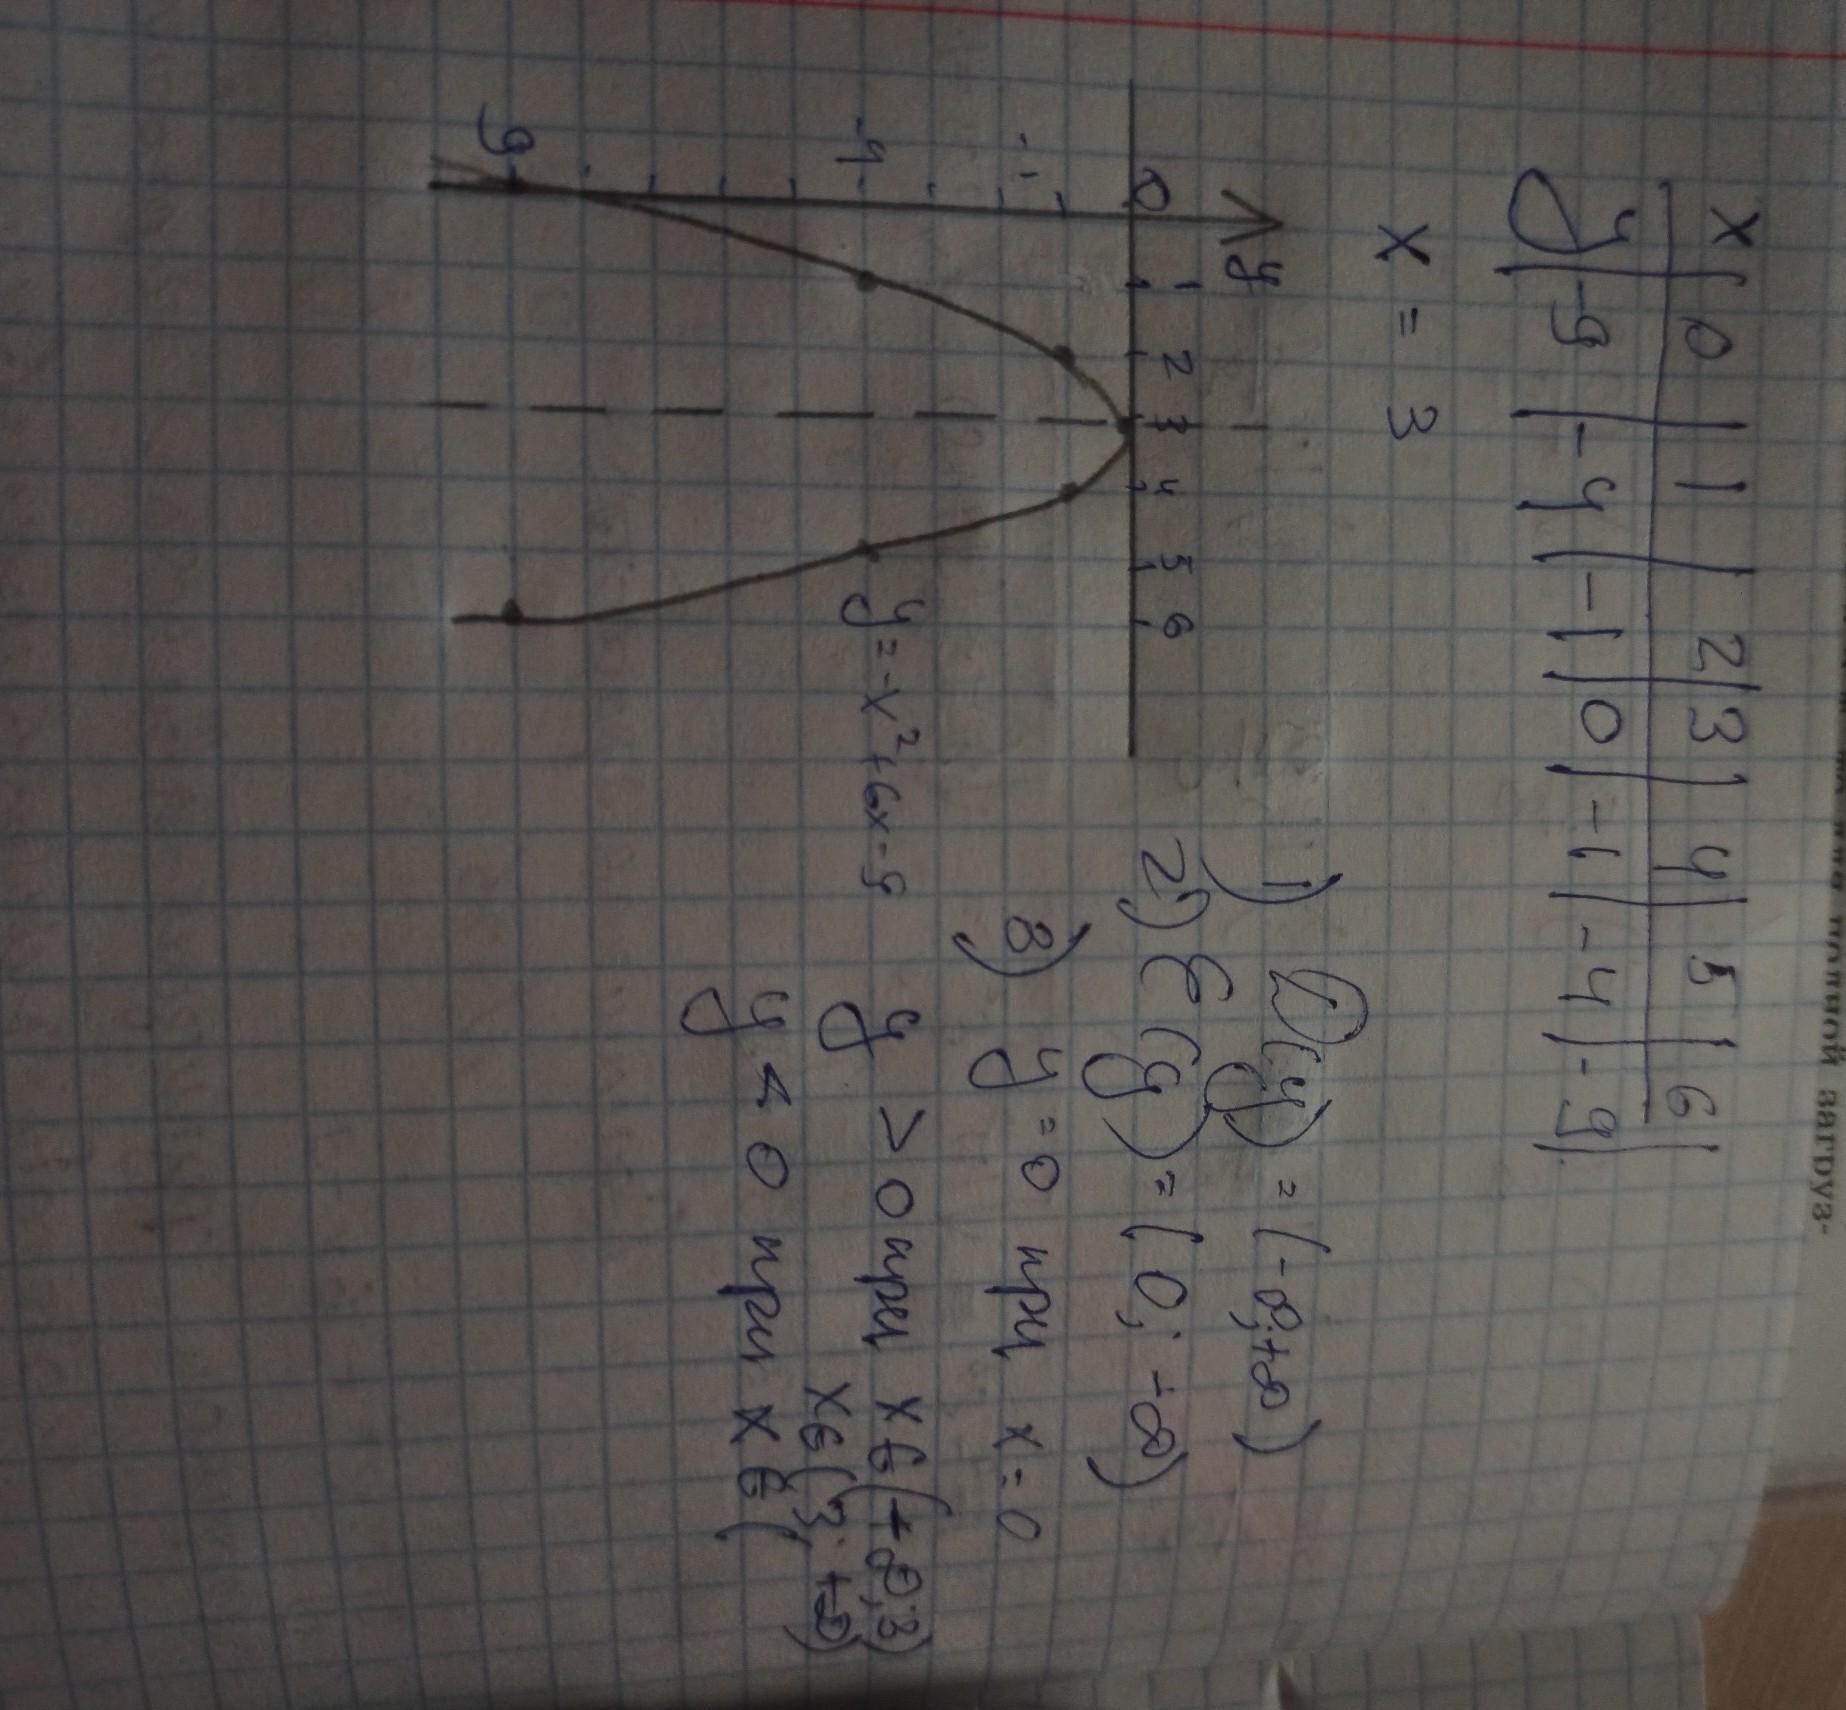 x | 0 | 1 | 2 | 3 | 4 | 5 | 6 |
y | -9 | -4 | -1 | 0 | -1 | -4 | -9 |
x = 3
y
0 1 2 3 4 5 6
-1
-4
9
y=-x²+6x-9
1) D(y) = (-∞;+∞)
2) E(y) = (0; -∞)
3) y=0 при x=0
y > 0 при x∈(+∞;3)
x∈(3;+∞)
y < 0 при x∈(
загруз-